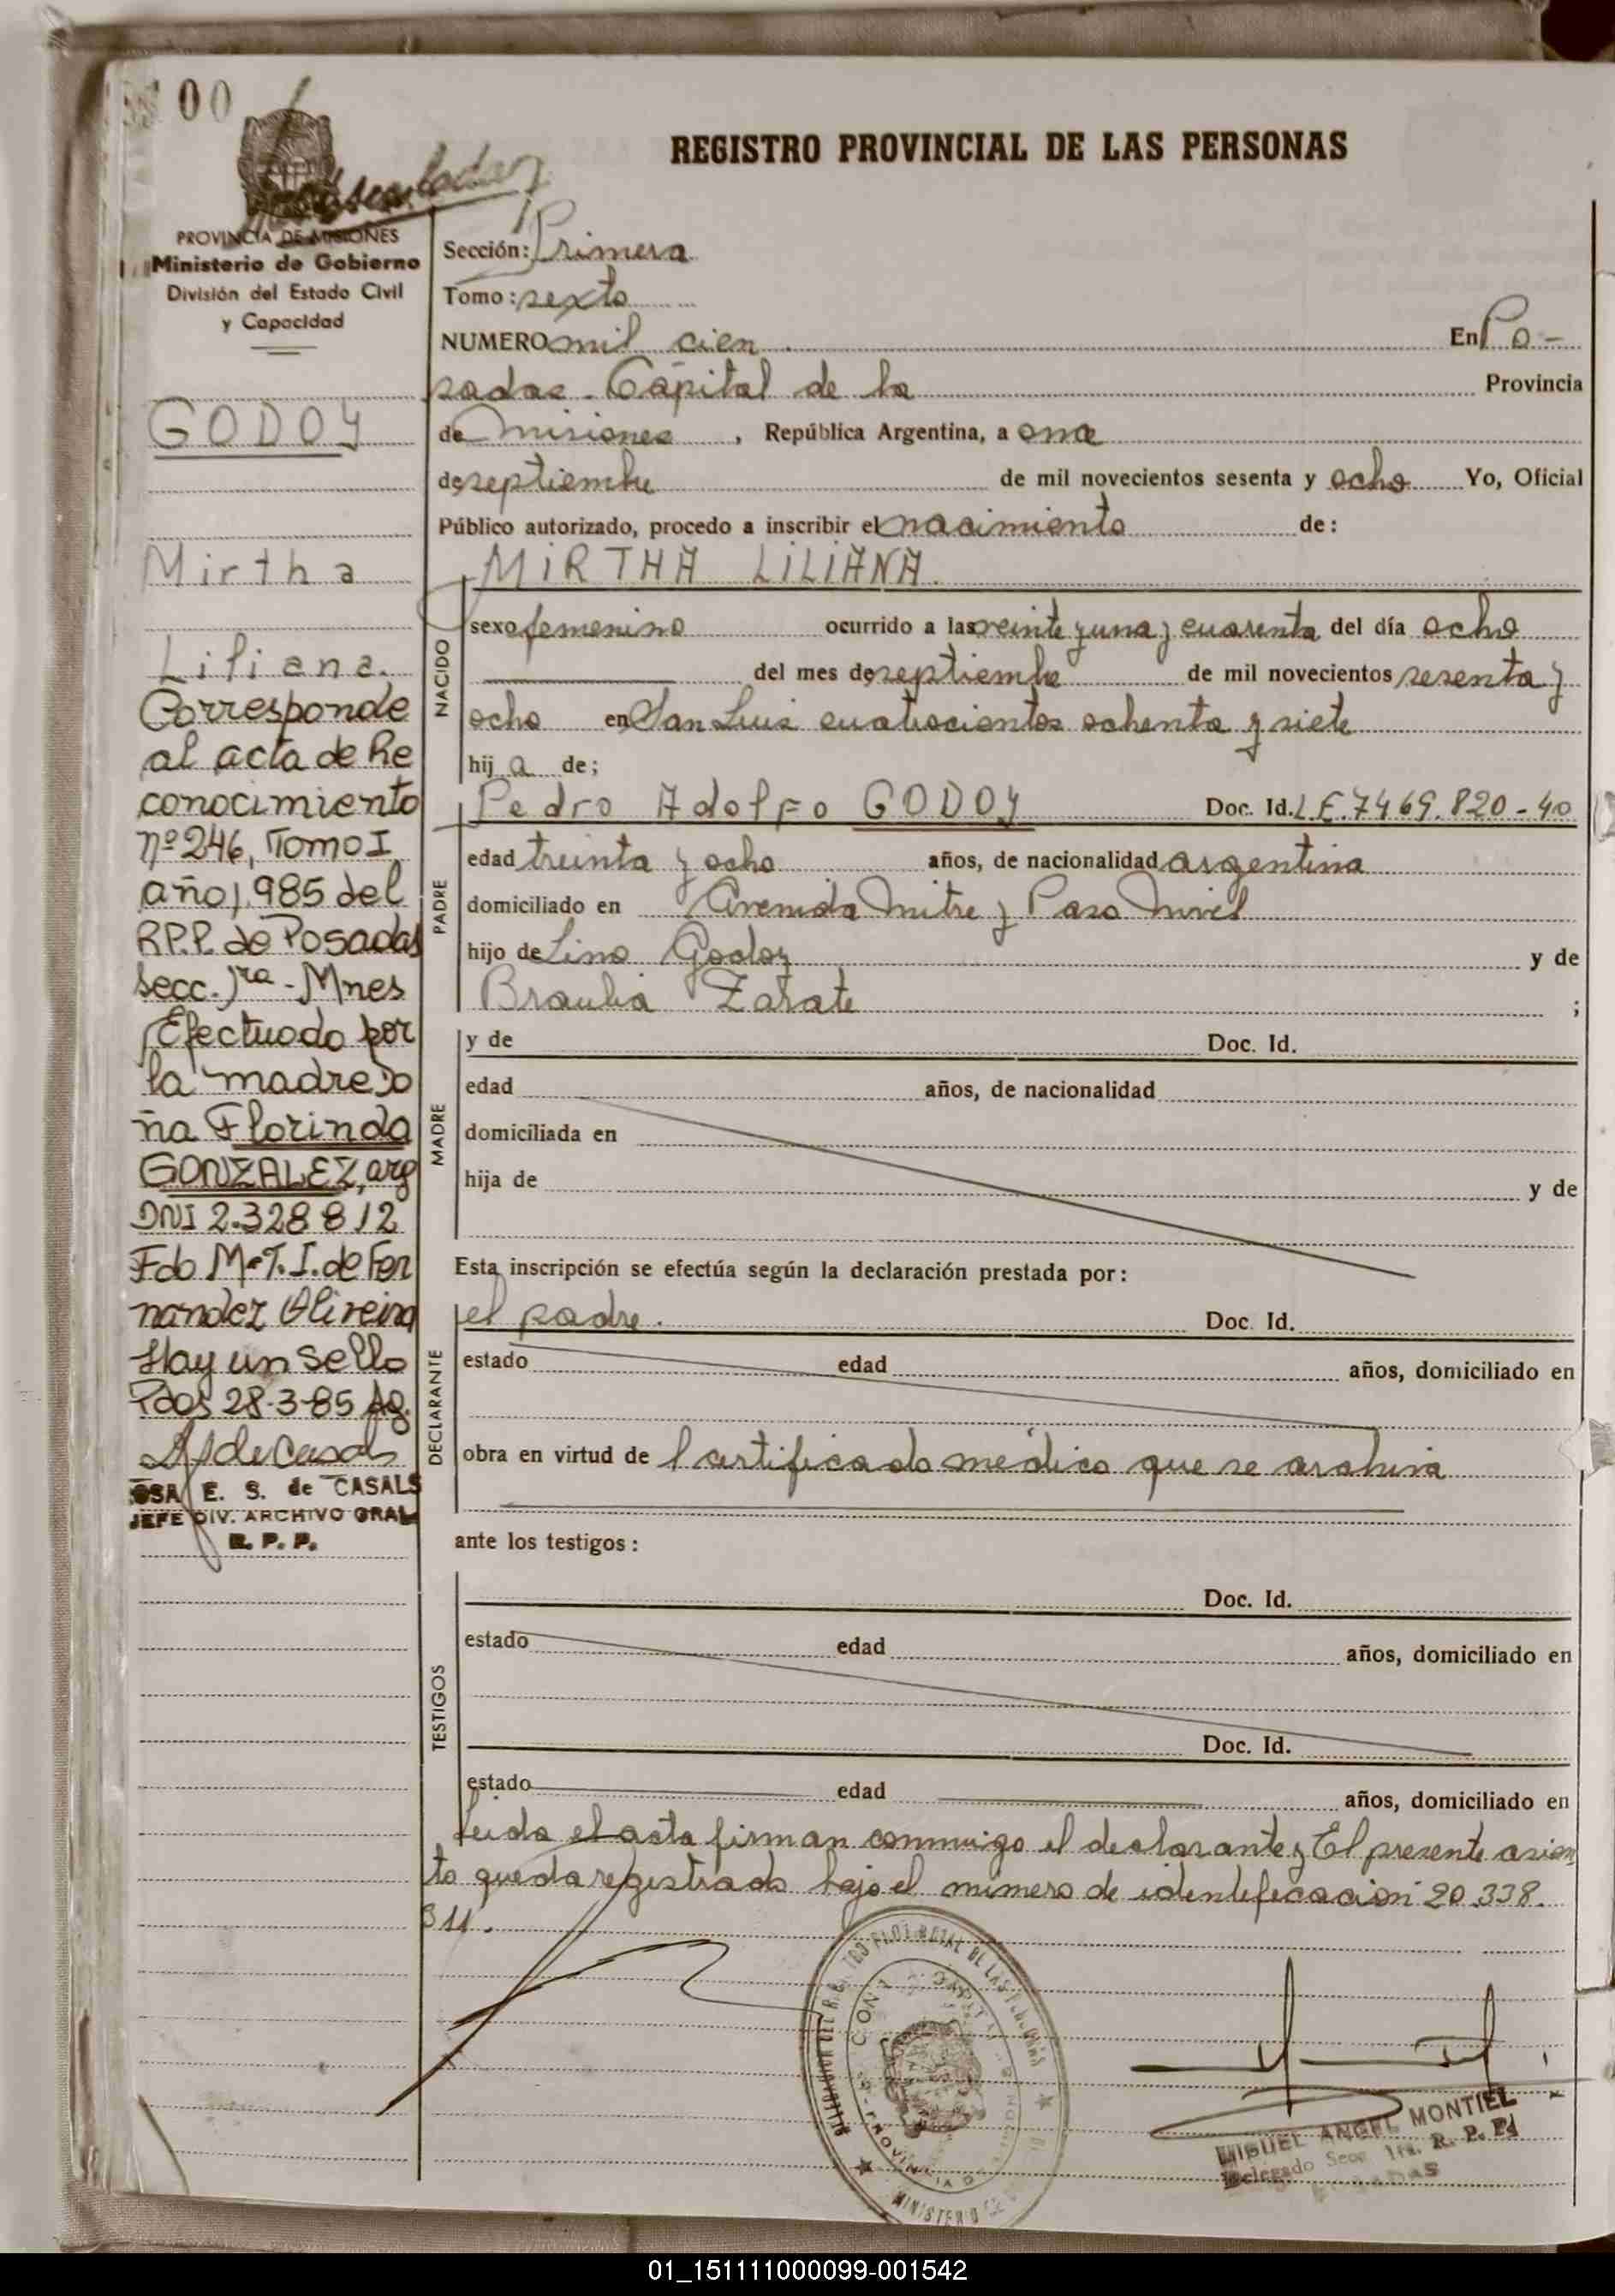 00
REGISTRO PROVINCIAL DE LAS PERSONAS
PROVINCIA DE MISIONES
Ministerio de Gobierno
División del Estado Civil
y Capacidad
GODOY
Mirtha
Liliana.
Corresponde
al acta de Re
conocimiento
nº 246, Tomo I
año 1.985 del
R.P.P. de Posadas
secc. 1ra - Mnes
Efectuado por
la madre Do
ña Florinda
GONZALEZ, arg
DNI 2.328812
Fdo M.T.I. de Fer
nandez Oliveira
Hay un sello
Pdas 28-3-85 Ag.
OSA E. S. de CASALS
JEFE DIV. ARCHIVO GRAL
R. P. P.
Sección: Primera
Tomo: sexto
NUMERO mil cien En Po-
sadas. Capital de la Provincia
de Misiones, República Argentina, a once
de septiembre de mil novecientos sesenta y ocho Yo, Oficial
Público autorizado, procedo a inscribir el nacimiento de:
MIRTHA LILIANA.
NACIDO
sexo femenino ocurrido a las veinte y una y cuarenta del día ocho
del mes de septiembre de mil novecientos sesenta y
ocho en San Luis cuatrocientos ochenta y siete
hija de;
PADRE
Pedro Adolfo GODOY Doc. Id. L.E. 7469.820-40
edad treinta y ocho años, de nacionalidad argentina
domiciliado en Avenida Mitre y Paso Nivel
hijo de Lino Godoy y de
Braulia Zarate ;
MADRE
y de Doc. Id.
edad años, de nacionalidad
domiciliada en
hija de y de
Esta inscripción se efectúa según la declaración prestada por:
DECLARANTE
el padre. Doc. Id.
estado edad años, domiciliado en
obra en virtud de certificado médico que se archiva
ante los testigos:
TESTIGOS
Doc. Id.
estado edad años, domiciliado en
Doc. Id.
estado edad años, domiciliado en
Leida el acta firman conmigo el declarante y El presente asien
to queda registrado bajo el número de identificación 20.338.
811.
MIGUEL ANGEL MONTIEL
Delegado Secc 1ra. R. P. P.
01_151111000099-001542